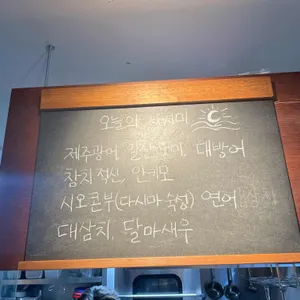 오늘의 사시미
제주광어, 대방어
참치 적신, 안키모
시오콘부(다시마 숙성) 연어
대삼치, 달마새우